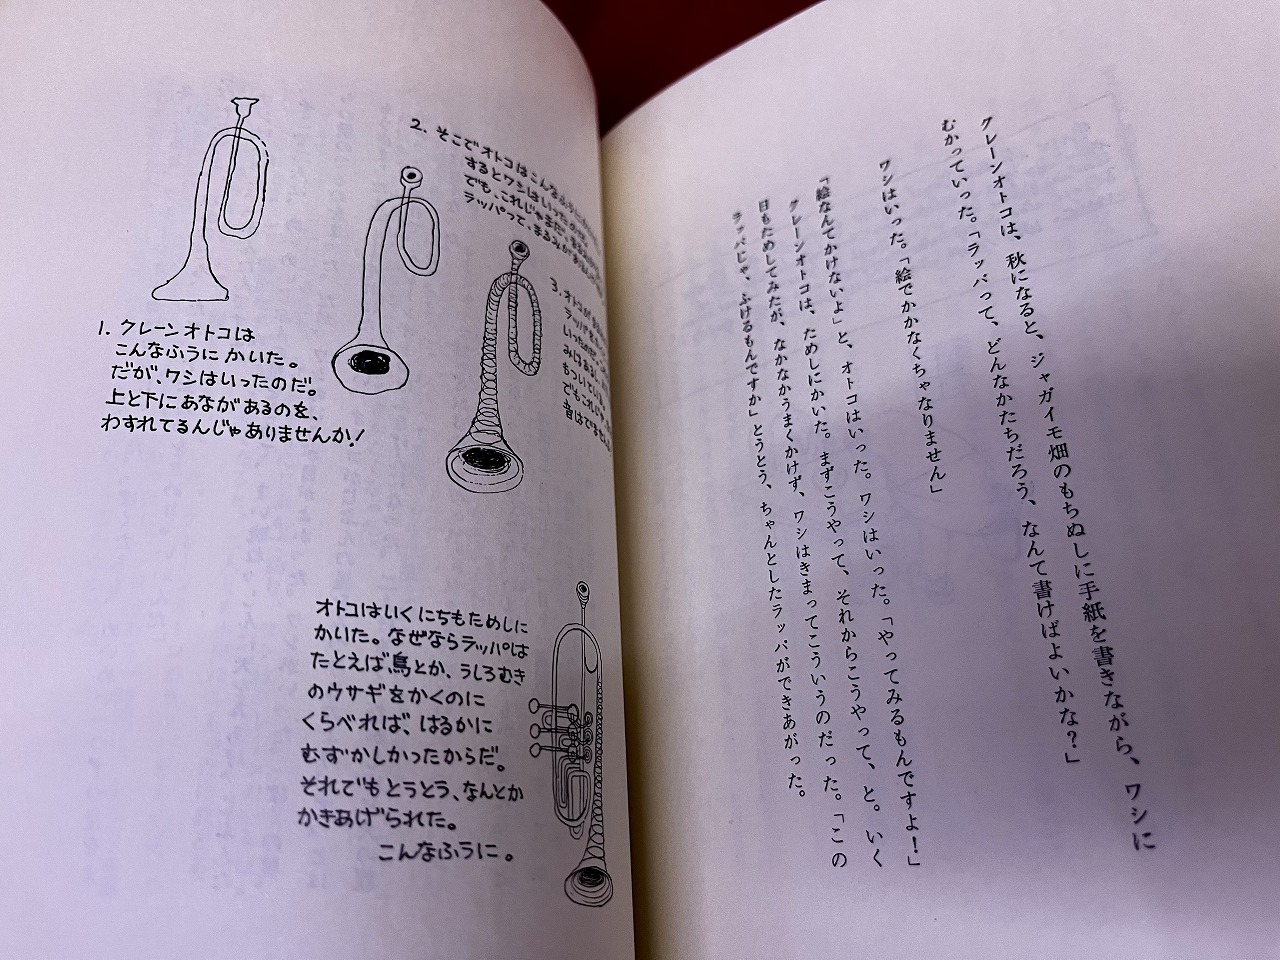 クレーンオトコは、秋になると、ジャガイモ畑のもちぬしに手紙を書きながら、ワシに
むかっていった。「ラッパって、どんなかたちだろう、なんて書けばよいかな？」
ワシはいった。「絵でかかなくちゃなりません」
「絵なんてかけないよ」と、オトコはいった。ワシはいった。「やってみるもんですよ！」
クレーンオトコは、ためしにかいた。まずこうやって、それからこうやって、と。いく
日もためしてみたが、なかなかうまくかけず、ワシはきまってこういうのだった。「この
ラッパじゃ、ふけるもんですか」とうとう、ちゃんとしたラッパができあがった。
1. クレーンオトコは
こんなふうにかいた。
だが、ワシはいったのだ。
上と下にあながあるのを、
わすれてるんじゃありませんか！
2. そこでオトコはこんなふうに
するとワシはいったのだ。
でも、これじゃまだ、
ラッパって、まるみが
3. オトコが
ラッパを
いったのだ。
でもこれじゃ
音はでません
オトコはいくにちもためしに
かいた。なぜならラッパは
たとえば、鳥とか、うしろむき
のウサギをかくのに
くらべれば、はるかに
むずかしかったからだ。
それでもとうとう、なんとか
かきあげられた。
こんなふうに。